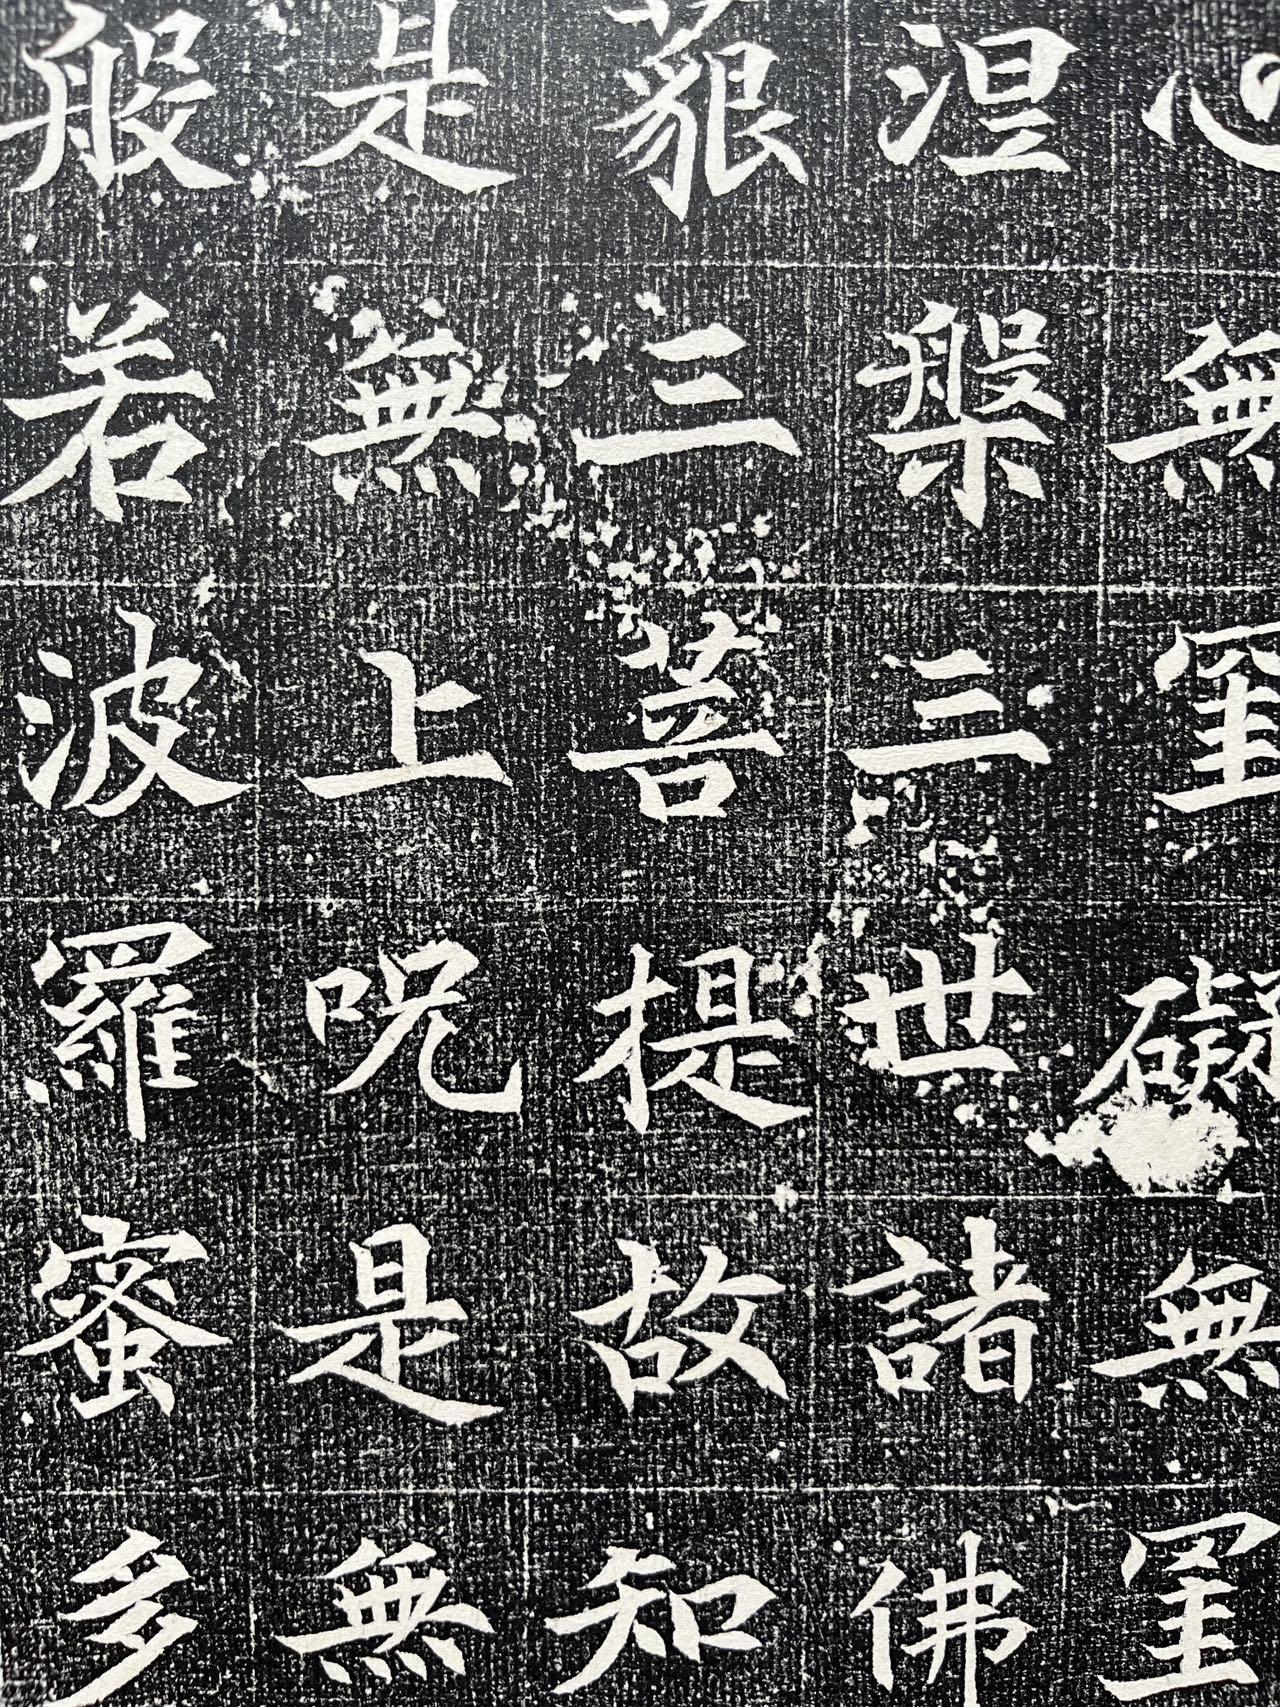 心無罣礙無罣
涅槃三世諸佛
藐三菩提故知
是無上呪是無
般若波羅蜜多